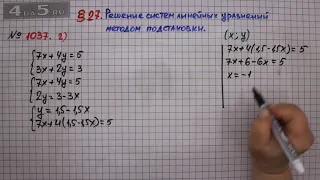 4 da 5 .ru
§ 27. Решение систем линейных уравнений
методом подстановки.
№ 1037. 2)
7x + 4y = 5
3x + 2y = 3
7x + 4y = 5
2y = 3 - 3x
y = 1,5 - 1,5x
7x + 4(1,5 - 1,5x) = 5
(x; y)
7x + 4(1,5 - 1,5x) = 5
7x + 6 - 6x = 5
x = -1